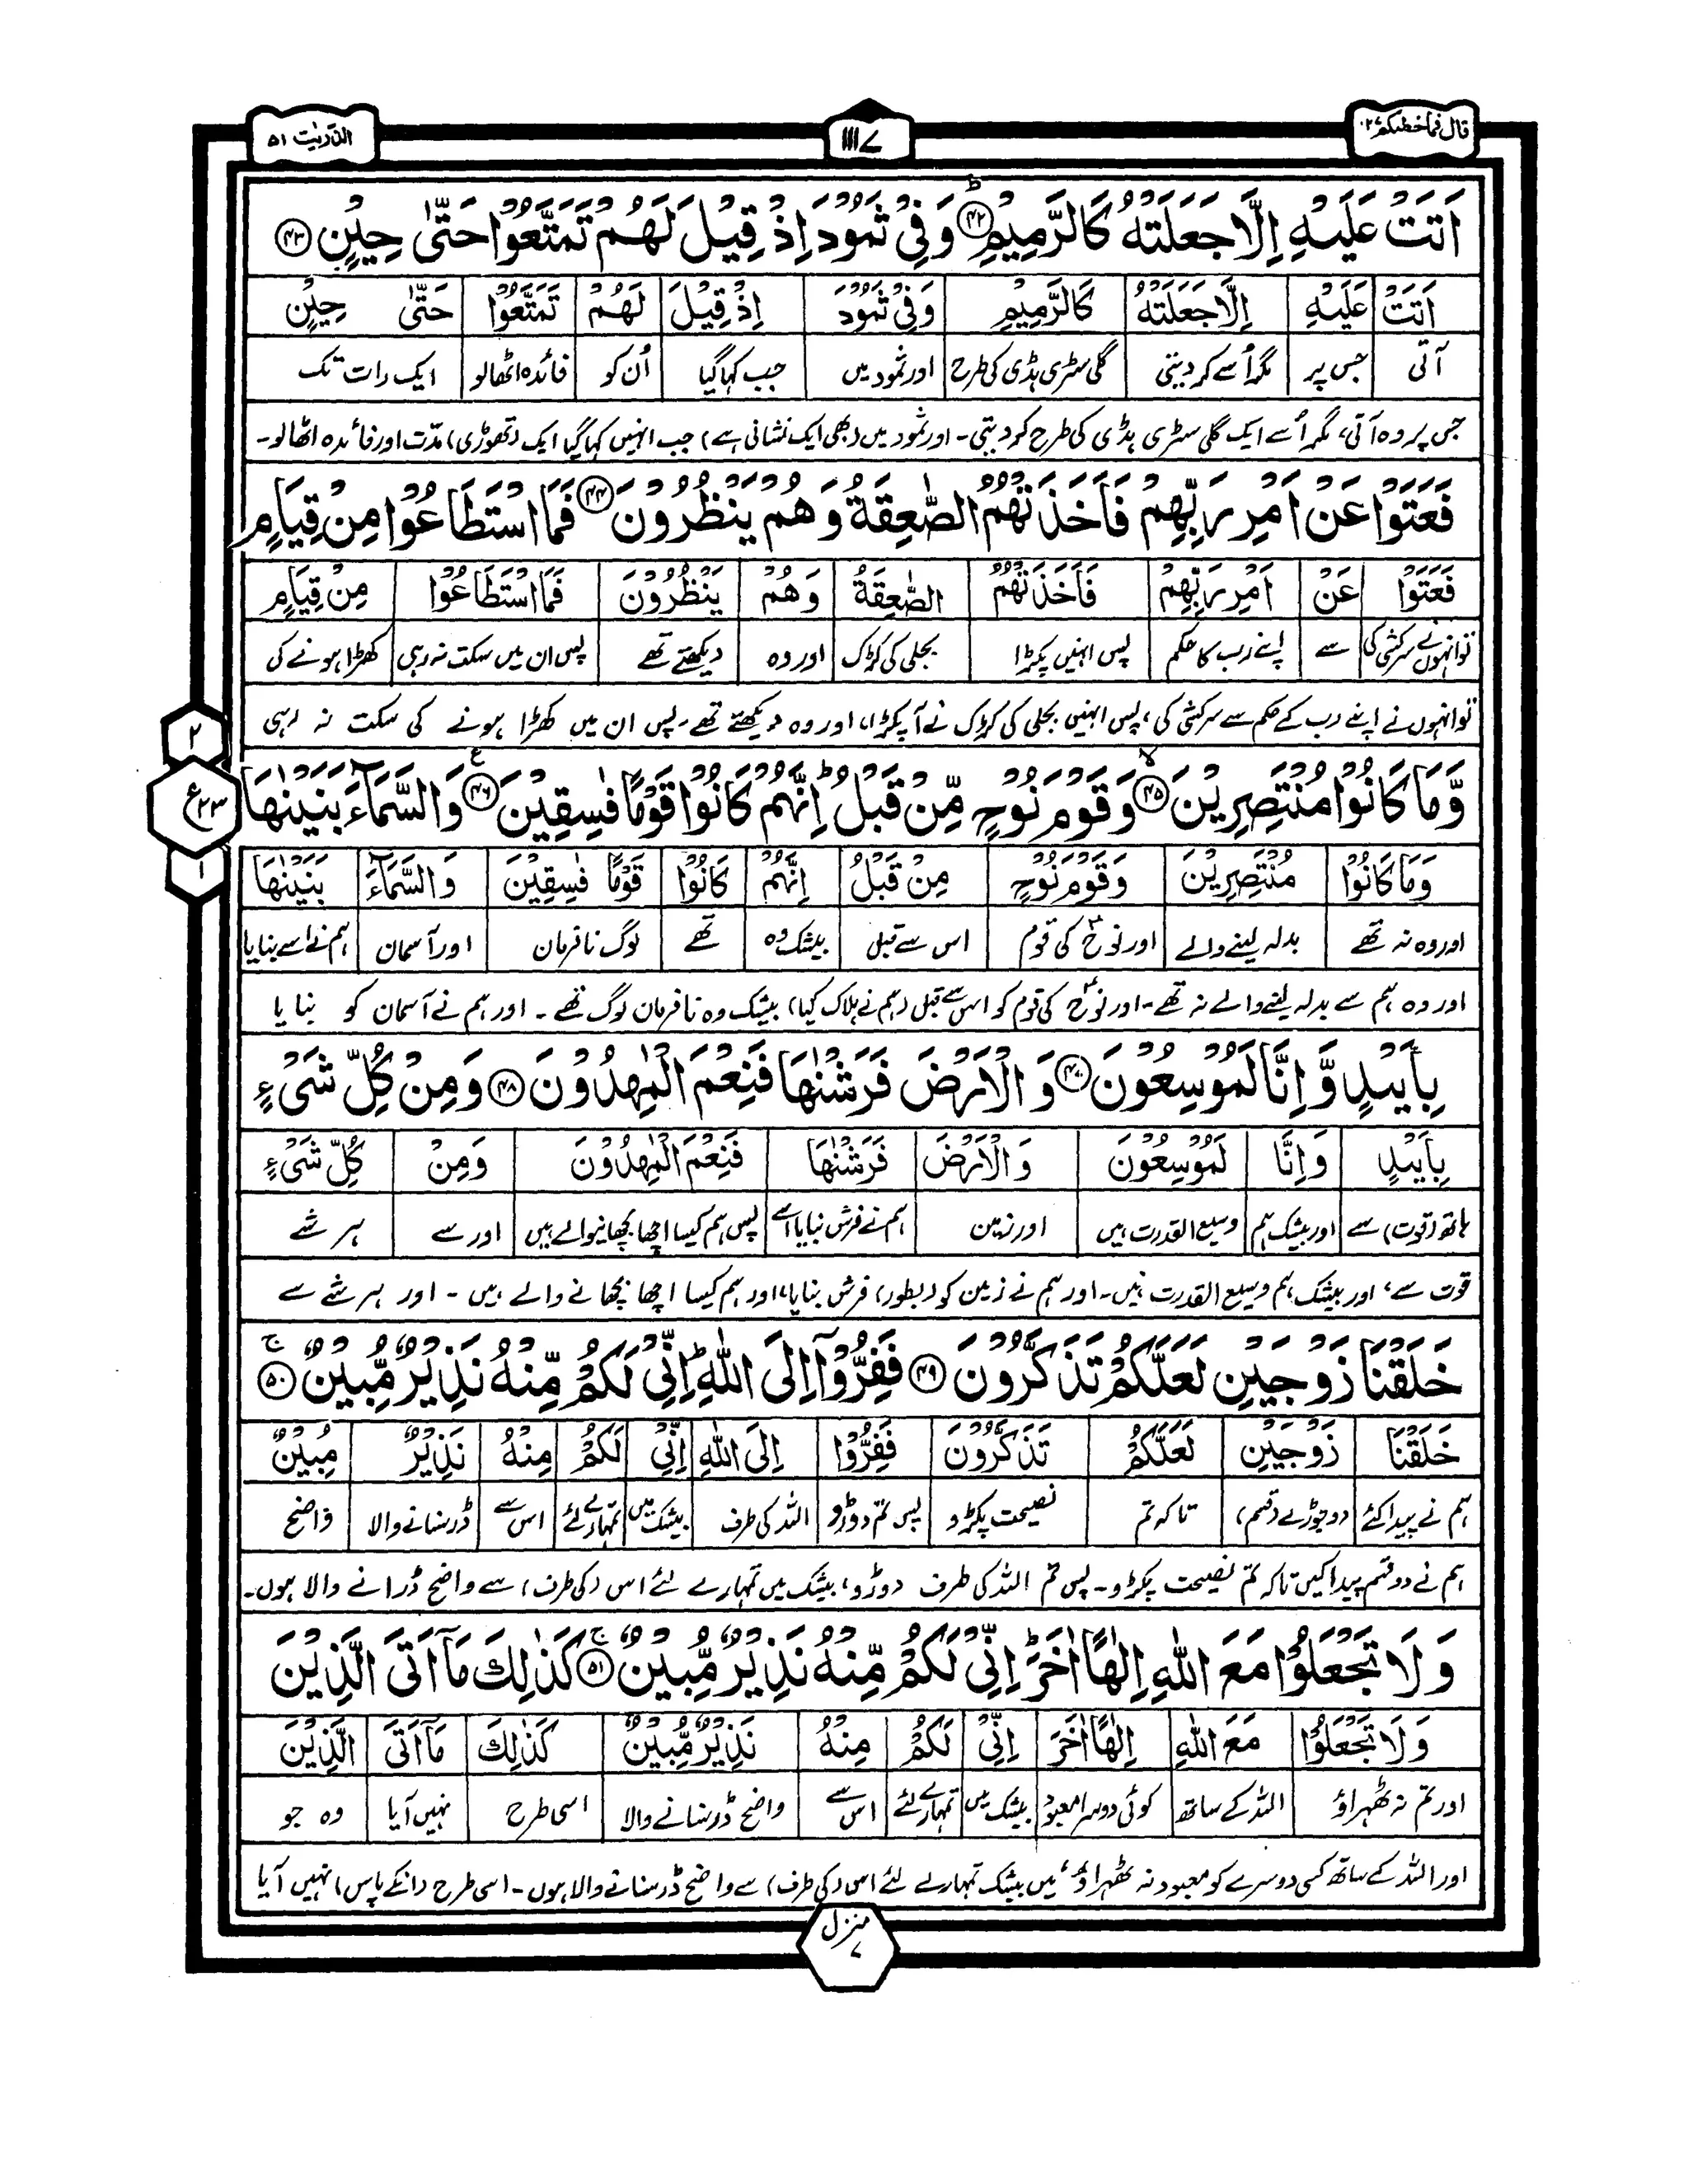 قال فما خطبكم ۲۷
۱۱۱۷
الذّٰریٰت ۵۱
اَتَتْ عَلَیْهِ اِلَّا جَعَلَتْهُ كَالرَّمِیْمِ ﴿۴۲﴾ؕ وَفِیْ ثَمُوْدَ اِذْ قِیْلَ لَهُمْ تَمَتَّعُوْا حَتّٰى حِیْنٍ ﴿۴۳﴾
اَتَتْ عَلَیْهِ اِلَّا جَعَلَتْهُ كَالرَّمِیْمِ وَفِیْ ثَمُوْدَ اِذْ قِیْلَ لَهُمْ تَمَتَّعُوْا حَتّٰى حِیْنٍ
آتی جس پر مگر اُسے کر دیتی گلی سڑی ہڈی کی طرح اور ثمود میں جب کہا گیا اُن کو فائدہ اٹھالو ایک رات تک
جس پر وہ آتی، مگر اُسے ایک گلی سڑی ہڈی کی طرح کر دیتی۔ اور ثمود میں (بھی ایک نشانی ہے) جب انہیں کہا گیا ایک (تھوڑی) مدّت اور فائدہ اٹھالو۔
فَعَتَوْا عَنْ اَمْرِ رَبِّهِمْ فَاَخَذَتْهُمُ الصّٰعِقَةُ وَهُمْ یَنْظُرُوْنَ ﴿۴۴﴾ فَمَا اسْتَطَاعُوْا مِنْ قِیَامٍ
فَعَتَوْا عَنْ اَمْرِ رَبِّهِمْ فَاَخَذَتْهُمُ الصّٰعِقَةُ وَهُمْ یَنْظُرُوْنَ فَمَا اسْتَطَاعُوْا مِنْ قِیَامٍ
تو انہوں نے سرکشی کی سے اپنے رب کا حکم پس انہیں پکڑا بجلی کی کڑک اور وہ دیکھتے تھے پس ان میں سکت نہ رہی کھڑا ہونے کی
تو انہوں نے اپنے رب کے حکم سے سرکشی کی، پس انہیں بجلی کی کڑک نے آ پکڑا، اور وہ دیکھتے تھے، پس ان میں کھڑا ہونے کی سکت نہ رہی
۲
ع ۲۳
۱
وَّمَا كَانُوْا مُنْتَصِرِیْنَ ﴿۴۵﴾ۙ وَقَوْمَ نُوْحٍ مِّنْ قَبْلُ ؕ اِنَّهُمْ كَانُوْا قَوْمًا فٰسِقِیْنَ ﴿۴۶﴾ع وَالسَّمَآءَ بَنَیْنٰهَا
وَمَا كَانُوْا مُنْتَصِرِیْنَ وَقَوْمَ نُوْحٍ مِنْ قَبْلُ اِنَّهُمْ كَانُوْا قَوْمًا فٰسِقِیْنَ وَالسَّمَآءَ بَنَیْنٰهَا
اور وہ نہ تھے بدلہ لینے والے اور نوحؑ کی قوم اس سے قبل بیشک وہ تھے لوگ نافرمان اور آسمان ہم نے اسے بنایا
اور وہ ہم سے بدلہ لینے والے نہ تھے۔ اور نوحؑ کی قوم کو اس سے قبل (ہم نے ہلاک کیا) بیشک وہ نافرمان لوگ تھے۔ اور ہم نے آسمان کو بنایا
بِاَیْىدٍ وَّاِنَّا لَمُوْسِعُوْنَ ﴿۴۷﴾ وَالْاَرْضَ فَرَشْنٰهَا فَنِعْمَ الْمٰهِدُوْنَ ﴿۴۸﴾ وَمِنْ كُلِّ شَیْءٍ
بِاَیْىدٍ وَاِنَّا لَمُوْسِعُوْنَ وَالْاَرْضَ فَرَشْنٰهَا فَنِعْمَ الْمٰهِدُوْنَ وَمِنْ كُلِّ شَیْءٍ
ہاتھ (قوت) سے اور بیشک ہم وسیع القدرت ہیں اور زمین ہم نے فرش بنایا اسے پس ہم کیسا اچھا بچھانیوالے ہیں اور سے ہر شے
قوت سے، اور بیشک ہم وسیع القدرت ہیں۔ اور ہم نے زمین کو (بطور) فرش بنایا، اور ہم کیسا اچھا بچھانے والے ہیں۔ اور ہر شے سے
خَلَقْنَا زَوْجَیْنِ لَعَلَّكُمْ تَذَكَّرُوْنَ ﴿۴۹﴾ فَفِرُّوْۤا اِلَى اللّٰهِ ؕ اِنِّیْ لَكُمْ مِّنْهُ نَذِیْرٌ مُّبِیْنٌ ﴿۵۰﴾ۚ
خَلَقْنَا زَوْجَیْنِ لَعَلَّكُمْ تَذَكَّرُوْنَ فَفِرُّوْا اِلَى اللّٰهِ اِنِّیْ لَكُمْ مِنْهُ نَذِیْرٌ مُبِیْنٌ
ہم نے پیدا کئے دو جوڑے (قسم) تاکہ تم نصیحت پکڑو پس تم دوڑو اللہ کی طرف بیشک میں تمہارے لئے اس سے ڈر سنانے والا واضح
ہم نے دو قسم پیدا کیں تاکہ تم نصیحت پکڑو۔ پس تم اللہ کی طرف دوڑو، بیشک میں تمہارے لئے اس (کی طرف) سے واضح ڈرانے والا ہوں۔
وَلَا تَجْعَلُوْا مَعَ اللّٰهِ اِلٰهًا اٰخَرَ ؕ اِنِّیْ لَكُمْ مِّنْهُ نَذِیْرٌ مُّبِیْنٌ ﴿۵۱﴾ۚ كَذٰلِكَ مَاۤ اَتَى الَّذِیْنَ
وَلَا تَجْعَلُوْا مَعَ اللّٰهِ اِلٰهًا اٰخَرَ اِنِّیْ لَكُمْ مِنْهُ نَذِیْرٌ مُّبِیْنٌ كَذٰلِكَ مَاۤ اَتَى الَّذِیْنَ
اور تم نہ ٹھہراؤ اللہ کے ساتھ کوئی دوسرا معبود بیشک میں تمہارے لئے اس سے واضح ڈر سنانے والا اسی طرح نہیں آیا وہ جو
اور اللہ کے ساتھ کسی دوسرے کو معبود نہ ٹھہراؤ، میں بیشک تمہارے لئے اس (کی طرف) سے واضح ڈر سنانے والا ہوں۔ اسی طرح (ان کے پاس) نہیں آیا
منزل ۷